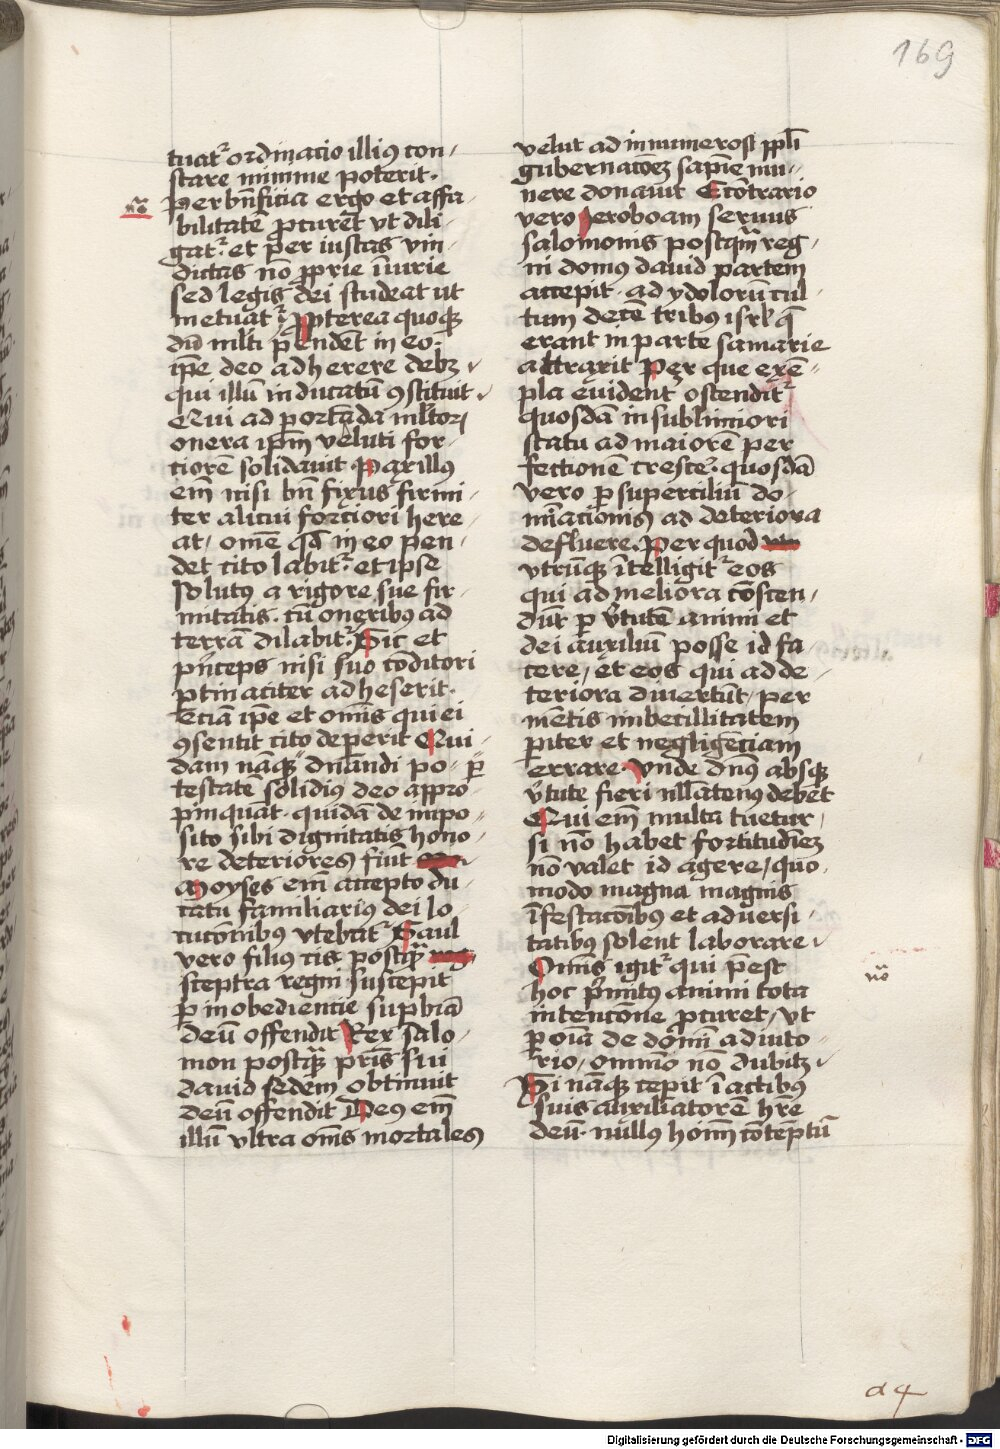 169
tuat᷑ ordinacio illiꝯ con-
stare minime poterit·
Per bn̄ficia ergo et affa-
bilitatē ꝓcuret vt dili-
gat᷑· et per iustas vin-
dictas nō ꝓprie iniurie
sed legis dei studeat ut
metuat᷑ Ꝓpterea quoqꝫ
dū ml̄ti pendēt in eo·
ip̄e deo adherere debꝫ
qui illū in ducatū ꝯstituit
Qui ad portāda ml̄torꝝ
onera ip̄m veluti for-
tiorē solidauit Parillus
em̄ nisi bn̄ fixus firmi-
ter alicui forciori here-
at / om̄e qd̄ in eo pen-
det cito labit᷑· et ipse
solutꝯ a rigore sue fir-
mitatis· cū oneribꝯ ad
terrā dilabit᷑· Sic et
pͥnceps nisi suo conditori
ꝑtinaciter adheserit·
Eciā ip̄e et om̄is qui ei
ꝯsentit cito deperit Qui-
dam nāqꝫ dn̄andi po- ꝑ
testatē solidiꝯ deo appro-
pinquāt· quidā de impo-
sito sibi dignitatis hono-
re deteriores fiūt
Moyses em̄ accepto du-
catu familiariꝯ dei lo-
cucōnibus vtebat᷑ Saul
vero filius cis postqͣꝫ
sceptra regni suscepit
ꝑ inobedientie suꝑbiā
deū offendit Rex salo-
mon postqͣꝫ pr̄is sui
dauid sedem obtinuit
deū offendit Deꝯ em̄
illū vltra om̄s mortales
velut ad innumerosi ppl̄i
gubernacōeꝫ sapīe mu-
nere donauit Ecōtrario
vero Jeroboam seruus
salomonis postqͣm reg-
ni domꝯ dauid partem
accepit· ad ydolorū cul-
tum decē tribus isrl̄ q̄
erant in parte samarie
attraxit Per que exē-
pla euident᷑ ostendit᷑
quosdā in sublimiori
statu ad maiorē per-
fectionē crescere· quosdā
vero ꝑ superciliū do-
minacionis ad deteriora
defluere· Per quod
vtrūqꝫ ītelligit᷑ eos
qui ad meliora cōscen-
dūt ꝑ v̓tutē animi et
dei auxiliū posse id fa-
cere / et eos qui ad de-
teriora diuertūt / per
mētis imbecillitatem
ꝑiter et negligēciam
errare· Vnde dn̄s absqꝫ
v̓tute fieri nll̄atenus debet
Qui em̄ multa tuetur
si nō habet fortitudīeꝫ
nō valet id agere / quo-
modo magna magnis
īfestacōibus et aduersi-
tatibꝯ solent laborare
Om̄is igit᷑ qui p̄est
hoc pͥmitꝯ animi tota
intencōne ꝓcuret / vt
ꝑ oīa de domī adiuto-
rio / omnīo nō dubitꝫ
Si nāqꝫ cepit ī actibꝯ
suis auxiliatorē hr̄e
deū· nullꝯ hoīm cōtēptū
d 4
Digitalisierung gefördert durch die Deutsche Forschungsgemeinschaft - DFG